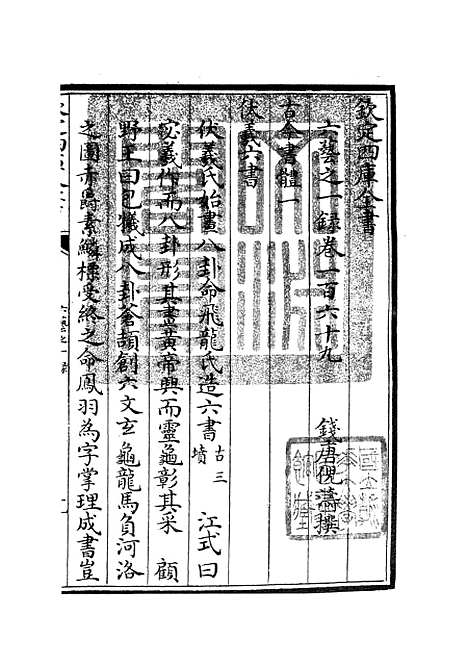 欽定四庫全書
六藝之一録卷一百六十九
錢唐倪濤撰
古今書體一
伏羲六書
伏羲氏始畫八卦命飛龍氏造六書古三墳 江式曰
宓羲作而八卦形其畫黄帝興而靈龜彰其采 顧
野王曰庖犧成八卦蒼頡創六文玄龜龍馬負河洛
之圖赤爵素鱗摽受終之命鳳羽為字掌理成書豈